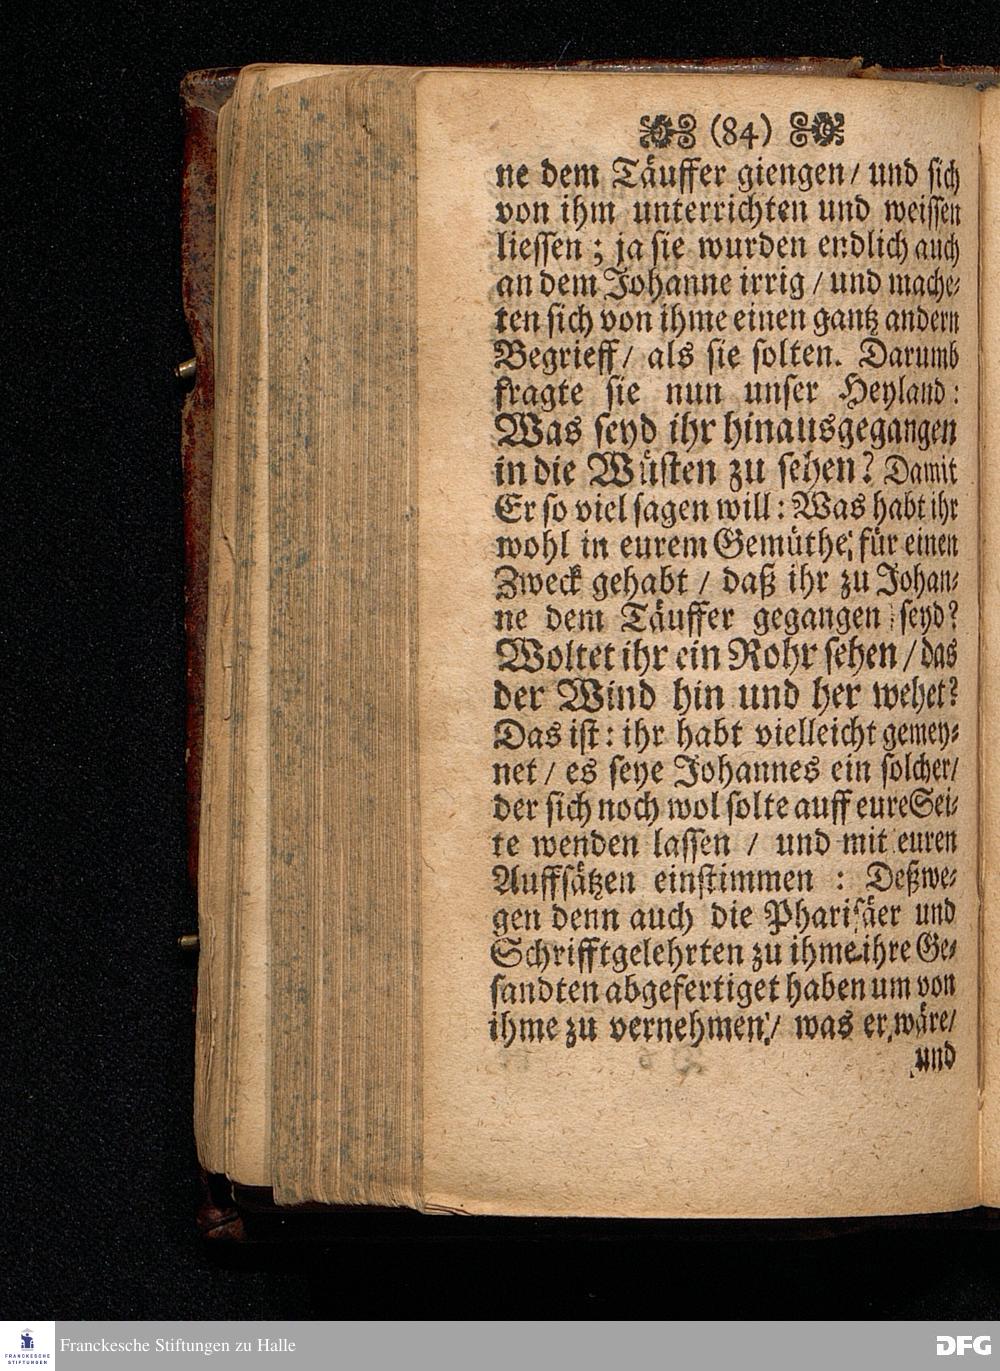 (84)
ne dem Täuffer giengen / und sich
von ihm unterrichten und weissen
liessen ; ja sie wurden endlich auch
an dem Johanne irrig / und mache⸗
ten sich von ihme einen gantz andern
Begrieff / als sie solten. Darumb
fragte sie nun unser Heyland :
Was seyd ihr hinausgegangen
in die Wüsten zu sehen? Damit
Er so viel sagen will : Was habt ihr
wohl in eurem Gemüthe, für einen
Zweck gehabt / daß ihr zu Johan⸗
ne dem Täuffer gegangen seyd?
Woltet ihr ein Rohr sehen / das
der Wind hin und her wehet?
Das ist : ihr habt vielleicht gemey⸗
net / es seye Johannes ein solcher /
der sich noch wol solte auff eure Sei⸗
te wenden lassen / und mit euren
Auffsätzen einstimmen : Deßwe⸗
gen denn auch die Pharisäer und
Schrifftgelehrten zu ihme ihre Ge⸗
sandten abgefertiget haben um von
ihme zu vernehmen / was er wäre /
und
FRANCKESCHE STIFTUNGEN
Franckesche Stiftungen zu Halle
DFG